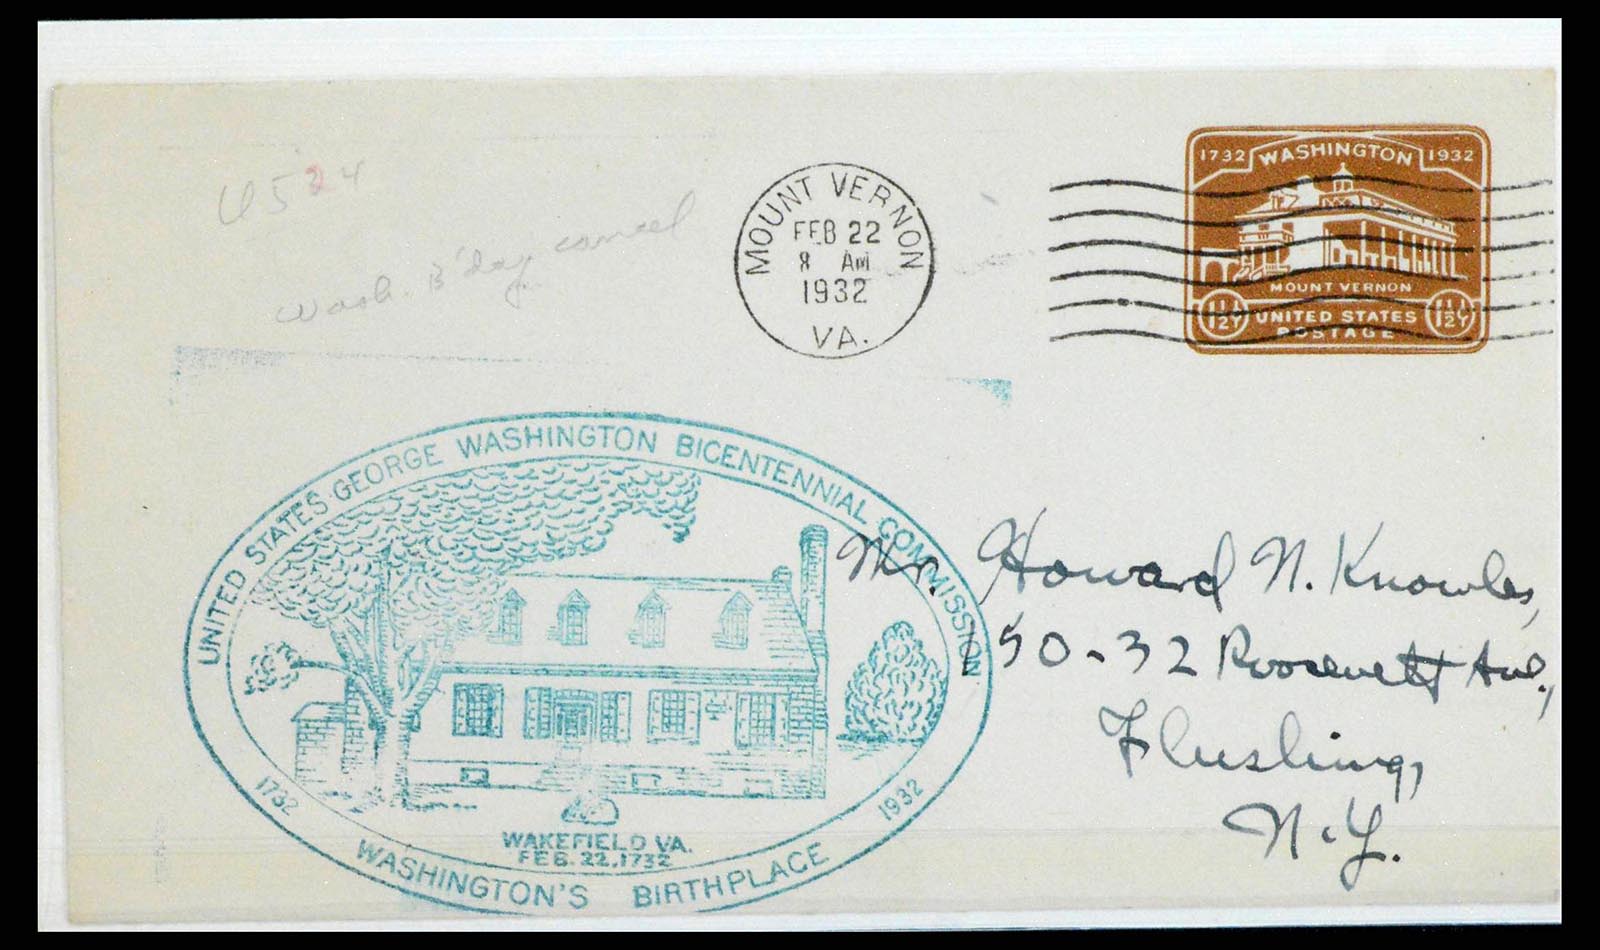 U524
Wash. B'day cancel
MOUNT VERNON
FEB 22
8 AM
1932
VA.
1732 WASHINGTON 1932
MOUNT VERNON
1 1/2 CTS UNITED STATES 1 1/2 CTS
POSTAGE
UNITED STATES GEORGE WASHINGTON BICENTENNIAL COMMISSION
1732 1932
WAKEFIELD VA.
FEB. 22, 1732
WASHINGTON'S BIRTHPLACE
Mr. Howard N. Knowles,
50-32 Roosevelt Ave.,
Flushing,
N.Y.